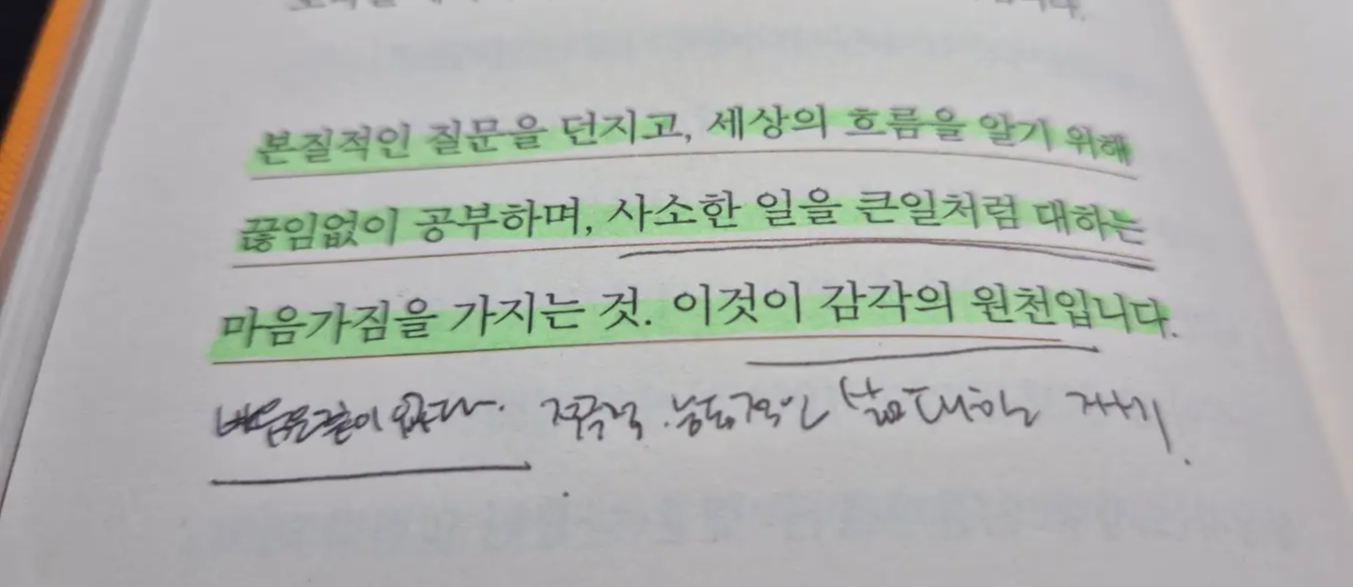 본질적인 질문을 던지고, 세상의 흐름을 알기 위해
끊임없이 공부하며, 사소한 일을 큰일처럼 대하는
마음가짐을 가지는 것. 이것이 감각의 원천입니다.
배움은 끝이 없다. 적극적. 능동적인 삶을 대하는 자세.